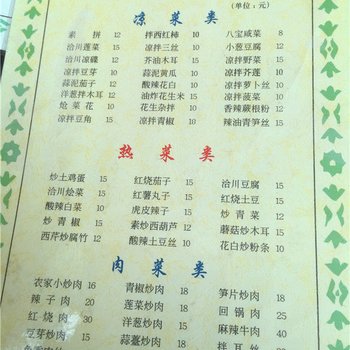 凉 菜 类
（单位：元）
素 拼 12 拌西红柿 10 八宝咸菜 8
洽川莲菜 15 凉拌三丝 10 小葱豆腐 12
洽川凉碟 12 芥油木耳 15 凉拌野菜 15
凉拌豆芽 10 蒜泥黄瓜 10 凉拌芥蓬 10
蒜泥茄子 12 酸辣花白 10 凉拌萝卜丝 10
洋葱拌木耳 12 油炸花生米 15 凉拌菠菜 10
炝菜花 10 花生杂拌 10 香辣蕨根粉 12
凉拌豆角 15 凉拌青椒 14 辣油青笋丝 10
热 菜 类
炒土鸡蛋 15 红烧茄子 15 洽川豆腐 15
洽川烩菜 15 红薯丸子 15 红烧土豆 15
酸辣白菜 10 虎皮辣子 15 炒青菜 12
炒青椒 14 素炒西葫芦 12 蘑菇炒木耳 15
西芹炒腐竹 12 酸辣土豆丝 10 花白炒粉条 10
肉 菜 类
农家小炒肉 16 青椒炒肉 18 笋片炒肉 18
辣子肉 20 莲菜炒肉 18 回锅肉 25
红烧肉 30 洋葱炒肉 15 麻辣牛肉 40
豆芽炒肉 15 蒜薹炒肉 18 拌耳丝